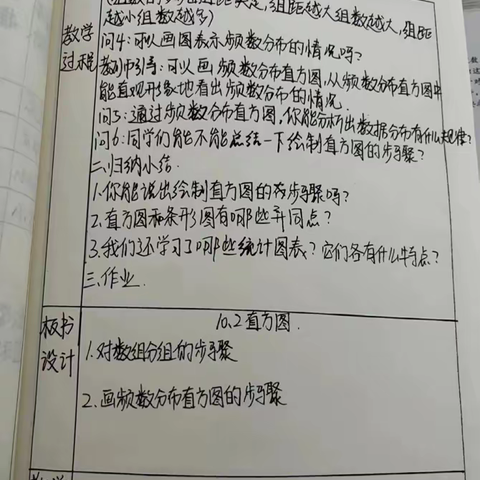 (组数的多少由组距决定,组距越大组数越大,组距
越小组数越多)
教学
过程
问4:可以画图表示频数分布的情况吗?
教师引导:可以画频数分布直方图,从频数分布直方图中
能直观形象地看出频数分布的情况.
问5:通过频数分布直方图,你能分析出数据分布有什么规律?
问6:同学们能不能总结一下绘制直方图的步骤?
二.归纳小结.
1.你能说出绘制直方图的步骤吗?
2.直方图和条形图有哪些异同点?
3.我们还学习了哪些统计图表?它们各有什么特点?
三.作业.
板书
设计
10.2直方图.
1.对数组分组的步骤
2.画频数分布直方图的步骤